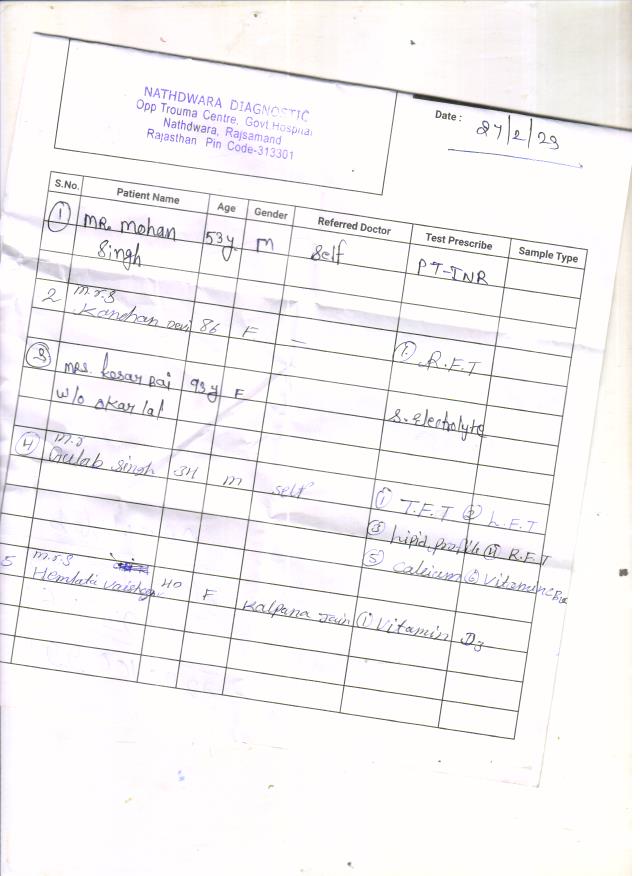 NATHDWARA DIAGNOSTIC
Opp Trouma Centre, Govt.Hospital
Nathdwara, Rajsamand
Rajasthan Pin Code-313301
Date : 27/2/23
S.No. Patient Name Age Gender Referred Doctor Test Prescribe Sample Type
1 MR. Mohan 53y M Self PT-INR
Singh
2 M.r.s
Kanchan Devi 86 F — 1. R.F.T
3 MRS. Kosar Bai 93y F S. Electrolyte
W/o Okar lal
4 M.r
Gulab Singh 34 M Self 1 T.F.T 2 L.F.T
3 Lipid profile 4 R.F.T
5 Calcium 6 Vitamine B12
5 M.r.s
Hemlata 40 F Kalpana Jain 1 Vitamin D3